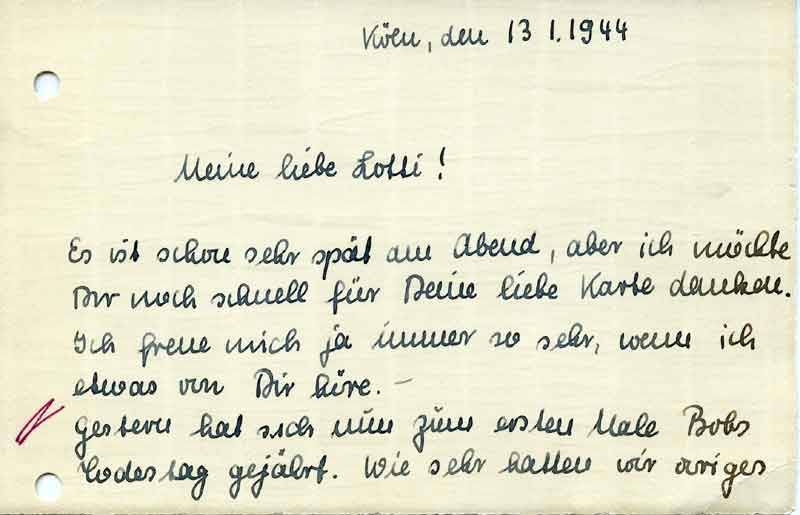 Köln, den 13 1.1944
Meine liebe Lotti!
Es ist schon sehr spät am Abend, aber ich möchte
Dir noch schnell für Deine liebe Karte danken.
Ich freue mich ja immer so sehr, wenn ich
etwas von Dir höre. –
Gestern hat sich nun zum ersten Male Bobs
Todestag gejährt. Wie sehr hatten wir voriges